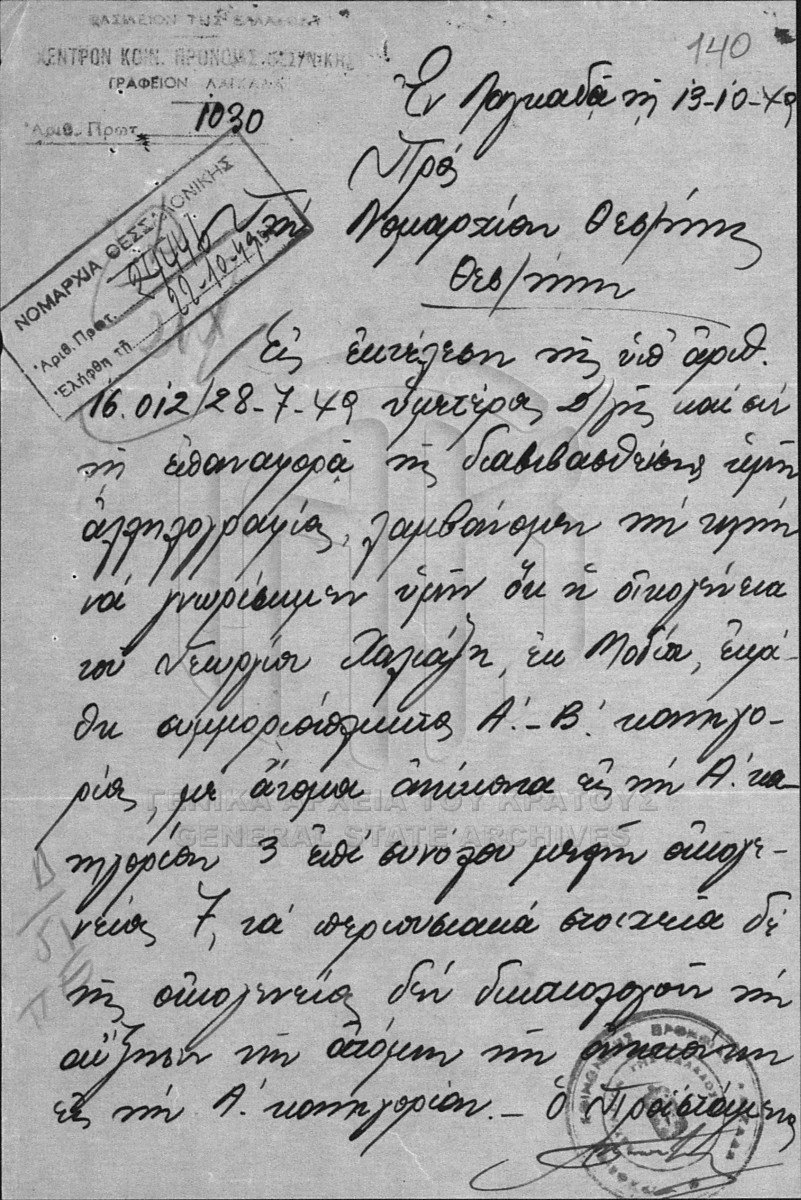 ΒΑΣΙΛΕΙΟΝ ΤΗΣ ΕΛΛΑΔΟΣ
ΚΕΝΤΡΟΝ ΚΟΙΝ. ΠΡΟΝΟΙΑΣ ΘΕΣ/ΝΙΚΗΣ
ΓΡΑΦΕΙΟΝ ΛΑΓΚΑΔΑ
Ἀριθ. Πρωτ. 1030
140
Ἐν Λαγκαδᾶ τῇ 13-10-49
Πρός
Τὴν Νομαρχίαν Θεσ/νίκης
Θεσ/νίκην
ΝΟΜΑΡΧΙΑ ΘΕΣΣΑΛΟΝΙΚΗΣ
Ἀριθ. Πρωτ.
Ἐλήφθη τῇ 22-10-49
Εἰς ἐκτέλεσιν τῆς ὑπ' ἀριθ.
16.012/28-7-49 ὑμετέρας Δ/γῆς καὶ ἐν
τῇ ἐπαναφορᾷ τῆς διαβιβασθείσης ἡμῖν
ἀλληλογραφίας, λαμβάνομεν τὴν τιμὴν
νά γνωρίσωμεν ὑμῖν ὅτι ἡ οἰκογένεια
τοῦ Γεωργίου, ἐκ, ἐκρί-
θη συμμοριόπληκτος Α'.-Β'. κατηγο-
ρίας, με ἄτομα ἀνήκοντα εἰς τὴν Α'. κα-
τηγορίαν 3 ἐπὶ συνόλου μελῶν οἰκογε-
νείας 7, τά περιουσιακά στοιχεῖα δέ
τῆς οἰκογενείας δέν δικαιολογοῦν τὴν
αὔξησιν τῶν ἀτόμων τῶν ἀνηκόντων
εἰς τὴν Α'. κατηγορίαν.- Ὁ Προϊστάμενος
ΓΕΝΙΚΑ ΑΡΧΕΙΑ ΤΟΥ ΚΡΑΤΟΥΣ
GENERAL STATE ARCHIVES